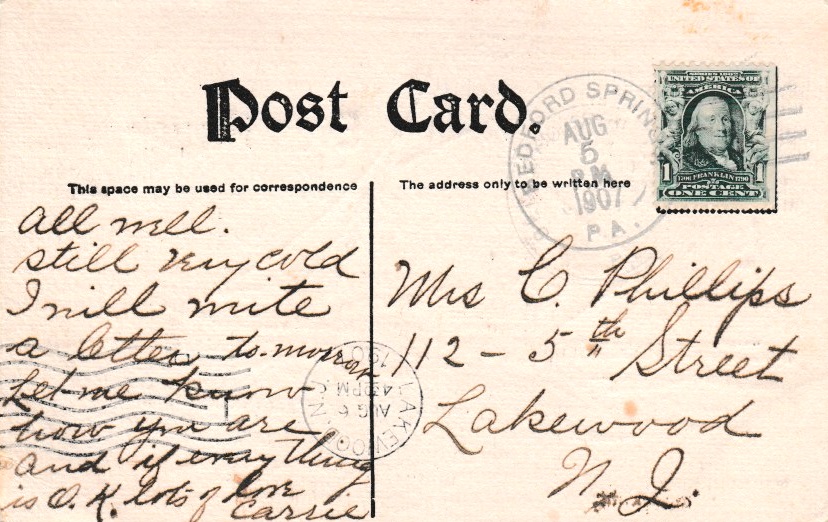 Post Card.
This space may be used for correspondence
The address only to be written here
BEDFORD SPRINGS
AUG
5
P.M.
1907
PA.
SERIES 1902
UNITED STATES OF
AMERICA
1 1
1706 FRANKLIN 1790
POSTAGE
ONE CENT
All well.
still very cold
I will write
a letter to-morrow
Let me know
how you are
and if everything
is O.K. lots of love
Carrie
Mrs C. Phillips
112 - 5th Street
Lakewood
N. J.
LAKEWOOD N.J.
AUG 6
430PM
190